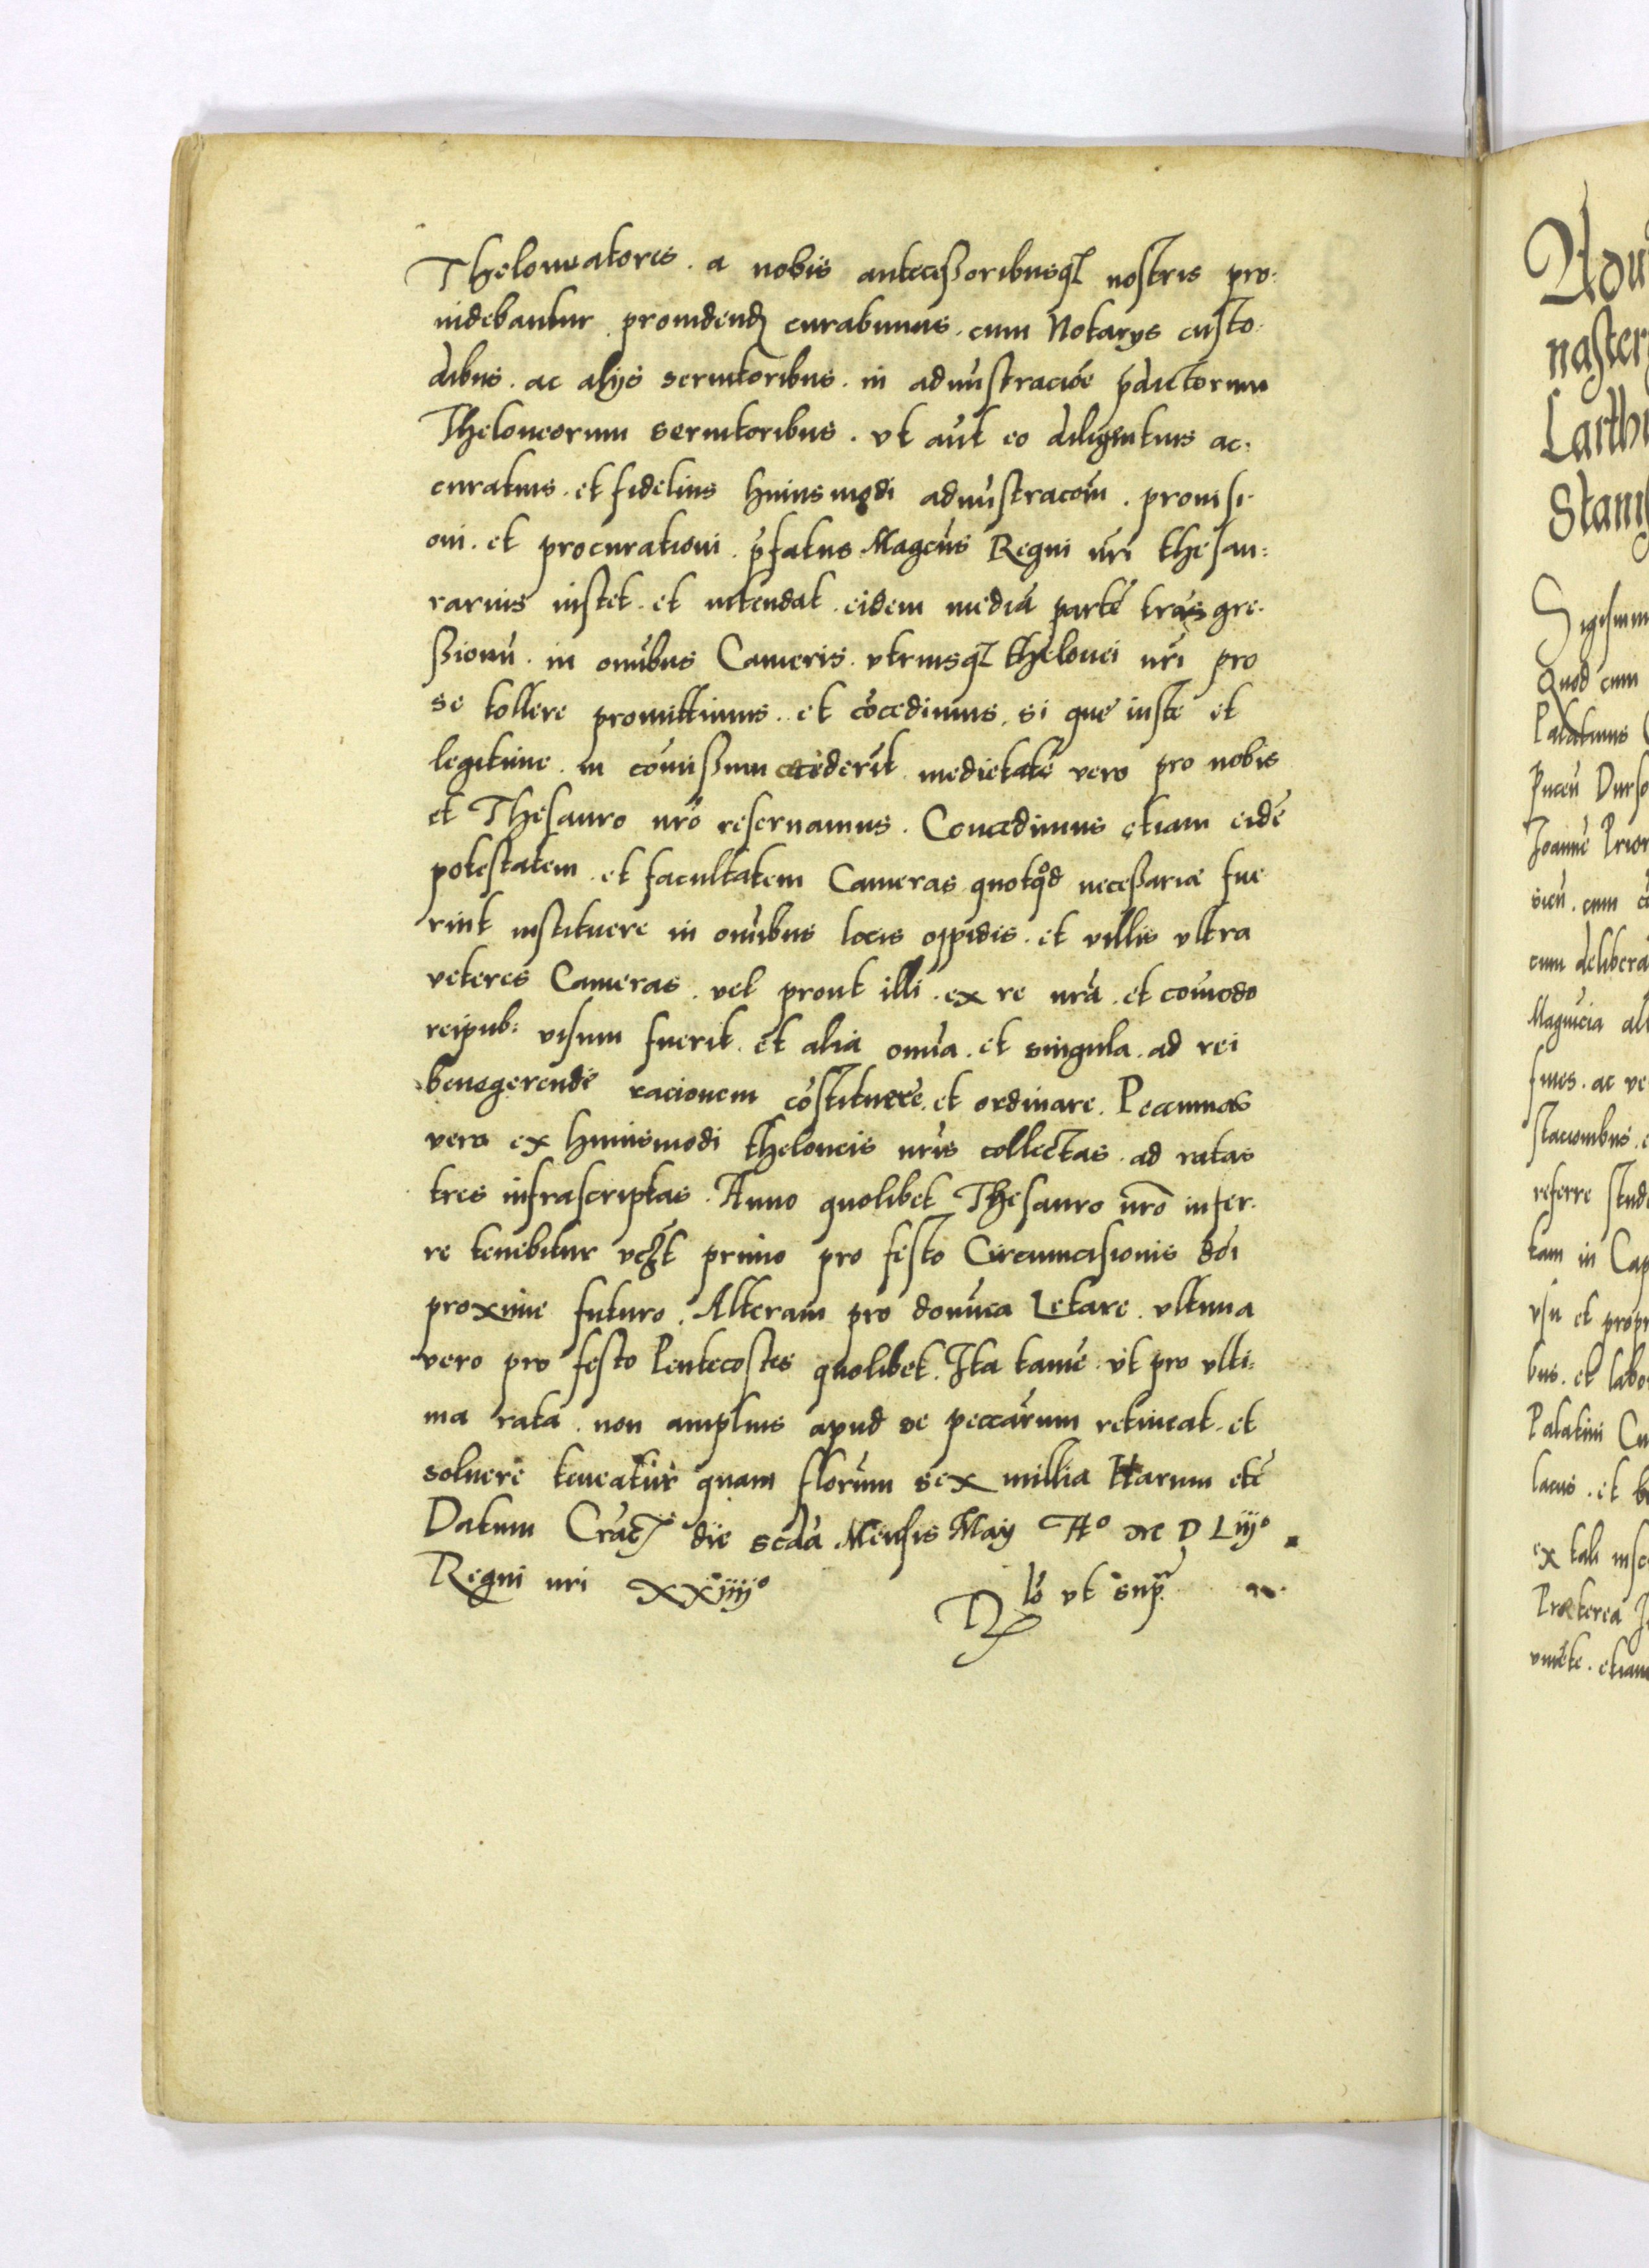 Theloneatores . a nobis anteceßoribusq3 nostris pro-
uidebantur prouidend curabimus . cum Notarys custo-
dibus . ac alijs seruitoribus . in administracióe pdictorum
Theloneorum seruitoribus . vt aút eo diligentius ac-
curatius . et fidelius huiusmodi administracóni . prouisi-
oni . et procurationi . pfatus Magcús Regni nri thesau-
rarius instet . et intendat . eidem mediá parté trásgre-
ßionú . in omíbus Cameris . vtriusq3 thelonei nri pro
se tollere promittimus . et cócedimus . si que iuste et
legitime . in cómißum cećiderít . medietaté vero pro nobis
et Thesauro nró reseruamus . Concedimus etiam eidé
potestatem . et facultatem Cameras quotqͦd neceßariæ fue
rint instituere in omíbus locis oppidis . et villis vltra
veteres Cameras . vel prout illi . ex re nrá . et cómodo
reipub: visum fuerit . et alia omía . et singula . ad rei
benegerendé racionem cóstituere et ordinare . Peccunias
vero ex huiusmodi theloneis nris collectas . ad ratas
tres infrascriptas . Anno quolibet Thesauro nró infer-
re tenebitur vczt primo pro festo Circumcisionis dói
proxime futuro . Alteram pro domíca Letare . vltima
vero pro festo Pentecostes quolibet . Ita tamé . vt pro vlti-
ma rata . non amplius apud se peccárum retineat . et
soluere teneatur quam florúm sex millia Harum eté
Datum Crac3 die scdá Mensis May Aº M D Liijº .
Regni nri xxiiijº
Rlo vt sup̃
Adu
naster
Laith
Stanis
Sigismun
Quod cum
Palatinus
Puceú Durso
Joanné Prior
cum delibera
Magnicia al
fines . ac ve
stacionibus .
referre stud
tam in Cap
vsú et propr
bus . et labo
Palatini Cu
lacus . et
ex tali insc
Præterea
vniéte . etiam